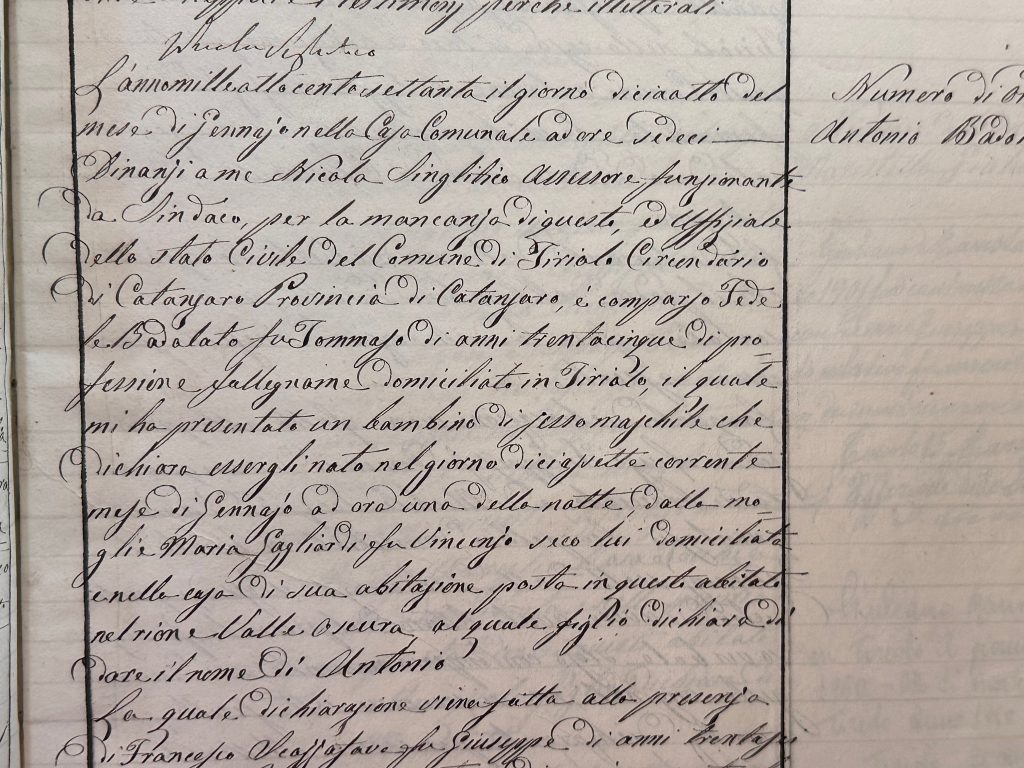 perche illetterali
L'anno mille otto cento settanta il giorno diciaotto del
mese di Gennajo nella Casa Comunale ad ore sedeci
Dinanzi a me Nicola Singlitico Assessore funzionante
da Sindaco, per la mancanza di questo, ed Uffiziale
dello stato Civile del Comune di Tiriolo Circondario
di Catanzaro Provincia di Catanzaro, é comparso Fede
le Badolato fu Tommaso di anni trentacinque di pro=
fessione fallegname domiciliato in Tiriolo il quale
mi ha presentato un bambino di sesso maschile che
dichiara essergli nato nel giorno diciasette corrente
mese di Gennajo ad ora una della notte dalla mo=
glie Maria Gagliardi fu Vincenzo seco lui domiciliata
e nella casa di sua abitazione posta in questo abitato
nel rione Valle oscura, al quale figlio dichiara di
dare il nome di Antonio
La quale dichiarazione viene fatta alla presenza
di Francesco fu Giuseppe di anni trentasei
Numero di
Antonio